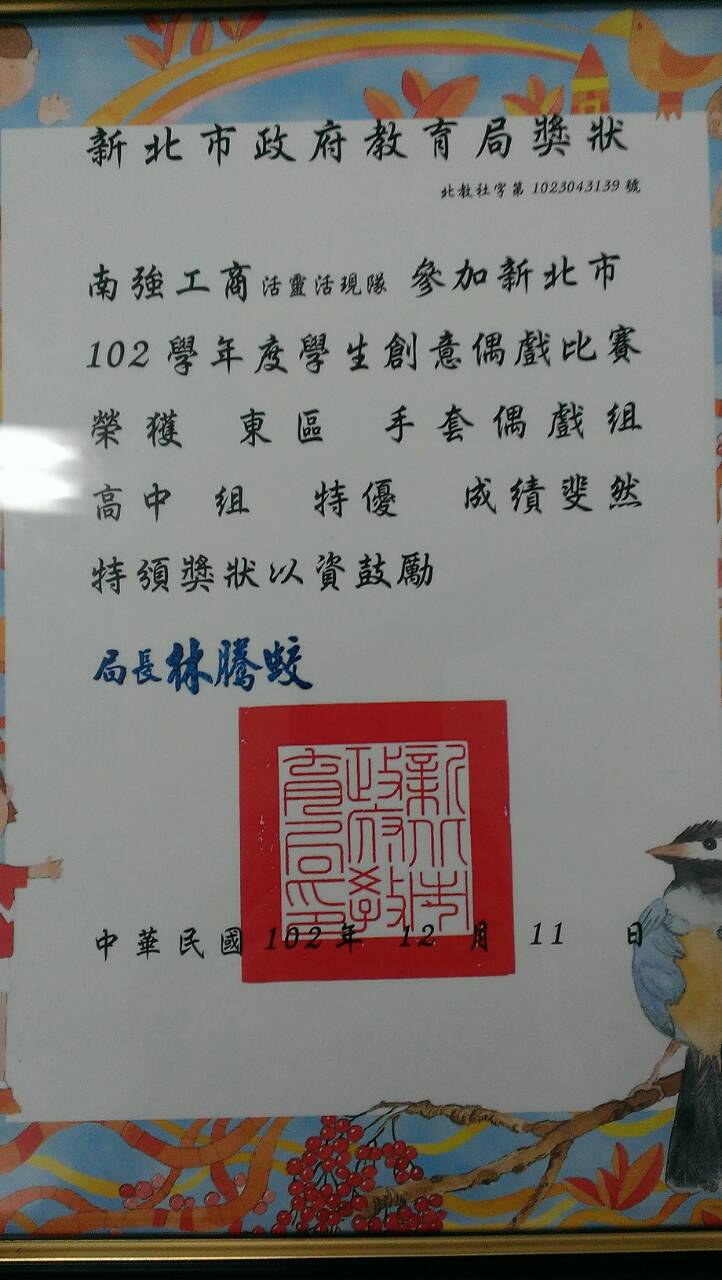 新北市政府教育局獎狀
北教社字第 1023043139 號
南強工商 活靈活現隊 參加新北市
102 學年度學生創意偶戲比賽
榮獲 東區 手套偶戲組
高中 組 特優 成績斐然
特頒獎狀以資鼓勵
局長 林騰蛟
新北市政府教育局印
中華民國 102 年 12 月 11 日